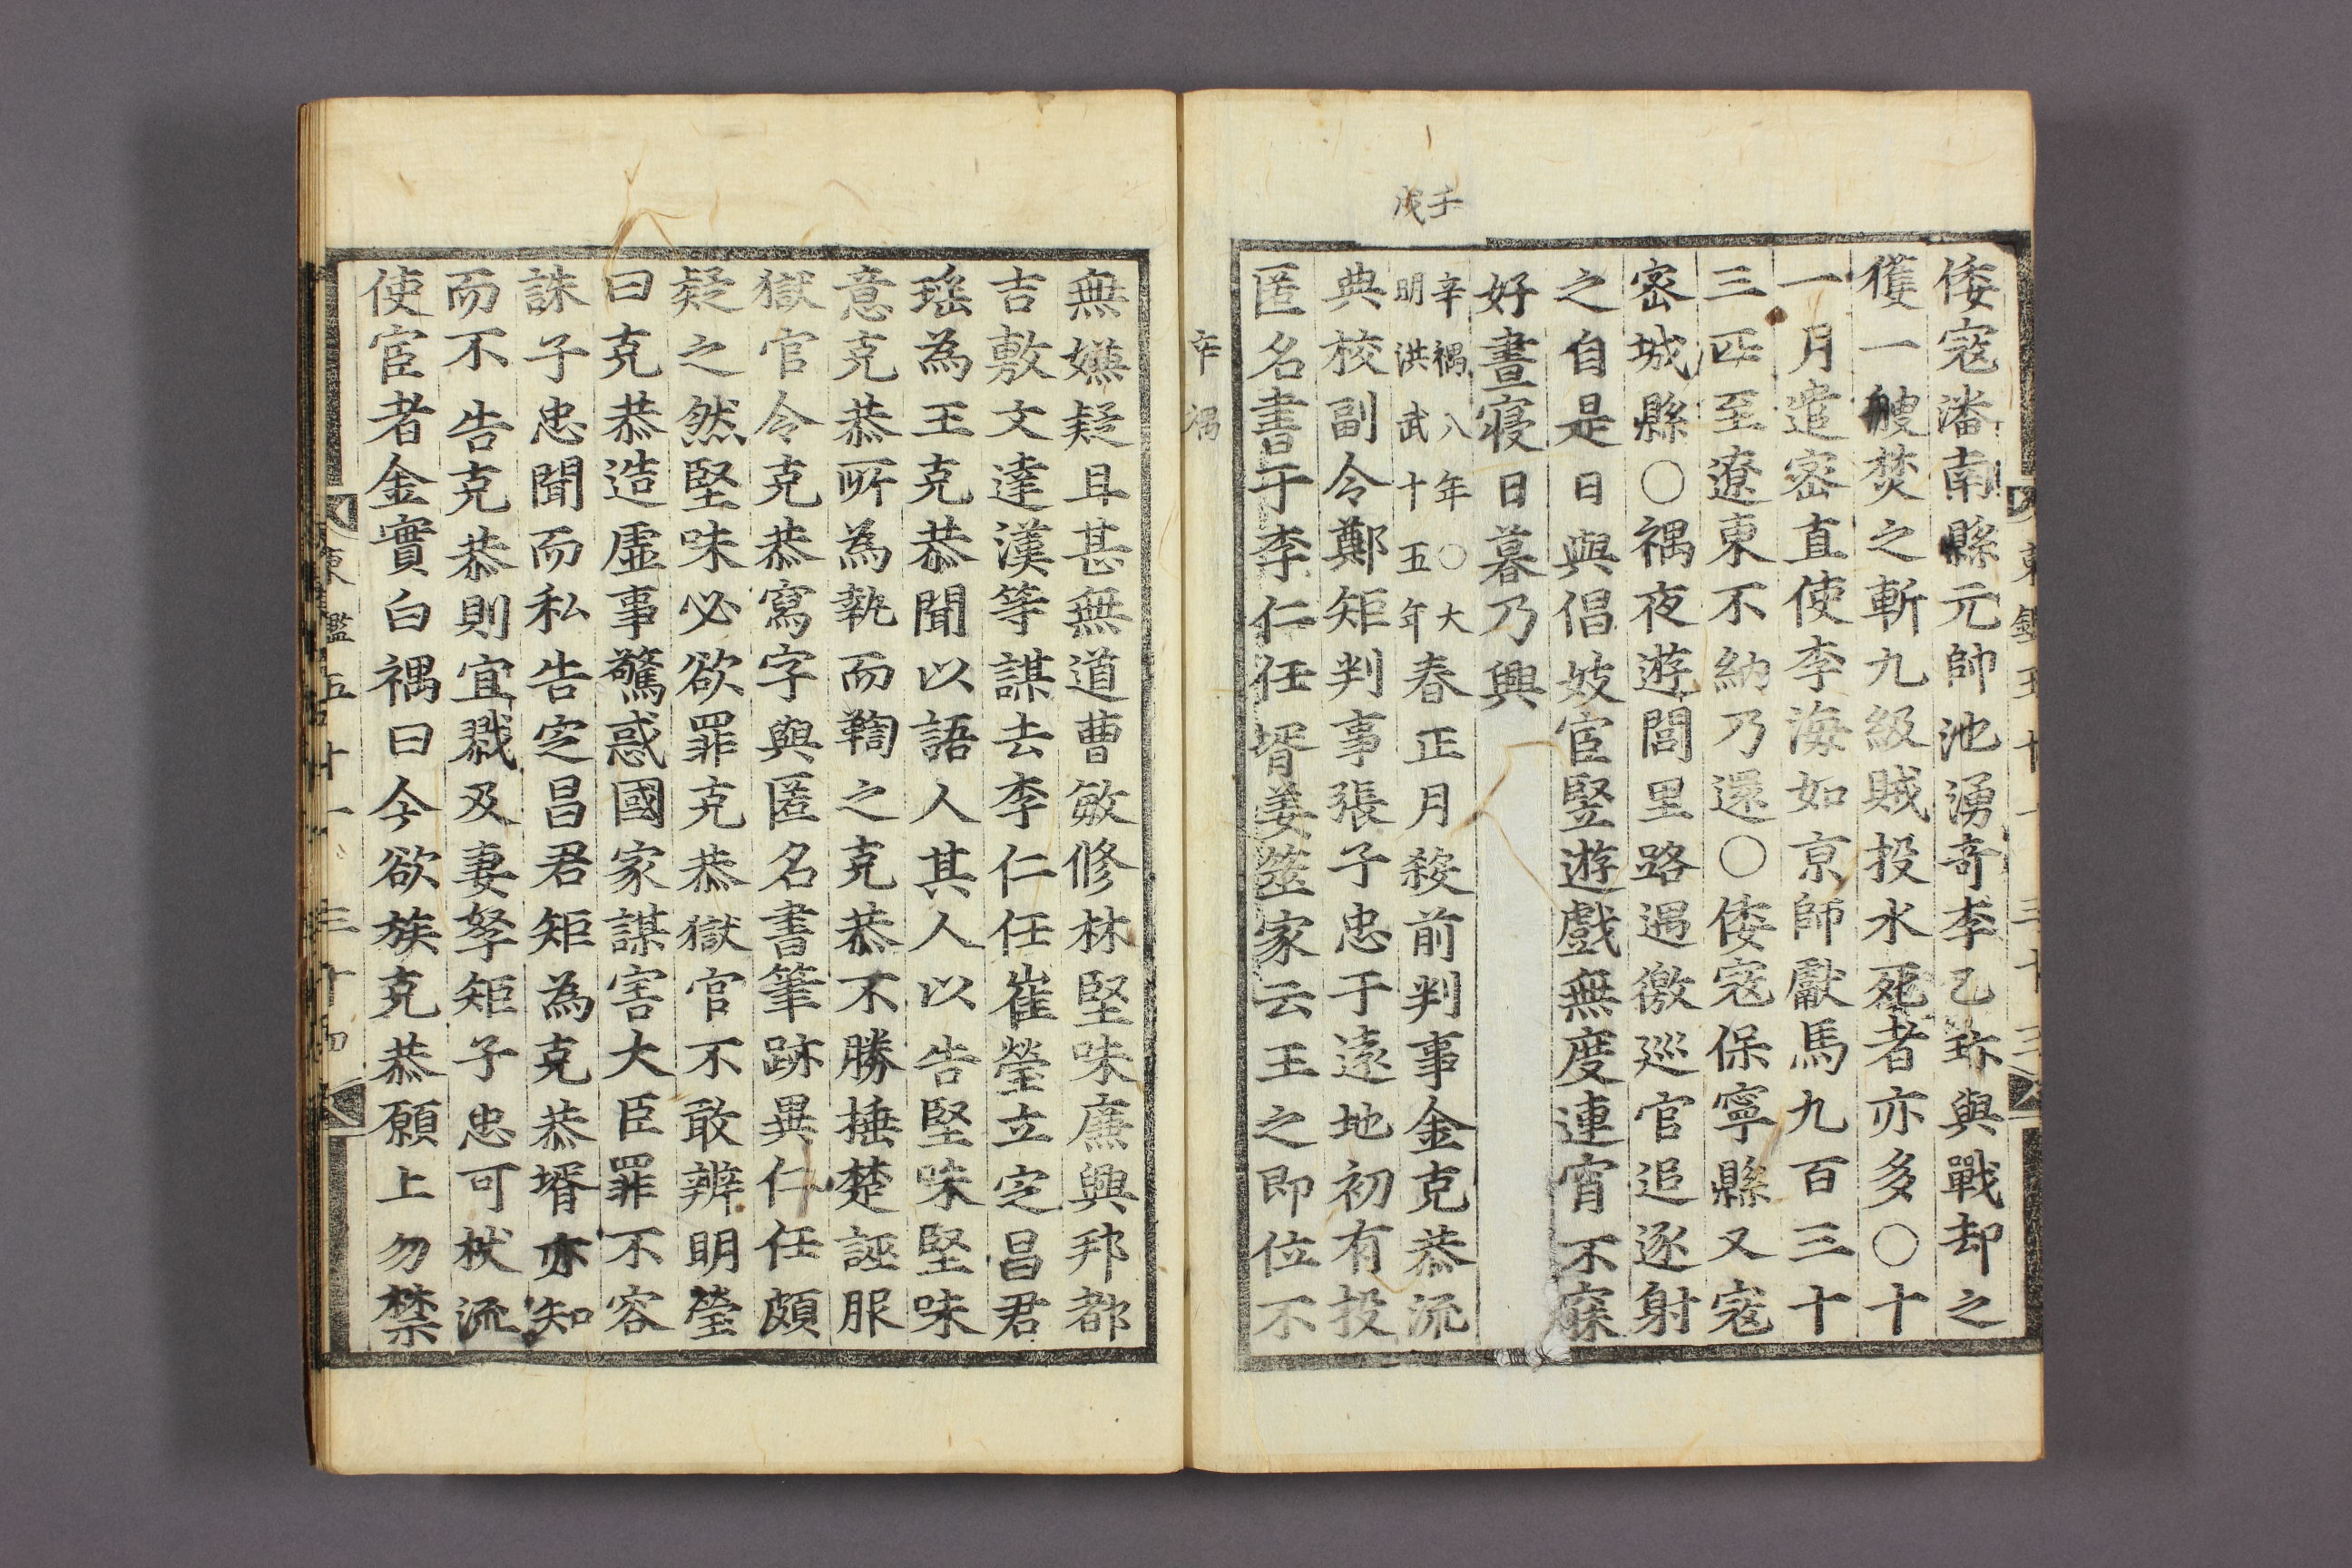 倭寇潘南縣元帥池湧奇李乙珎與戰却之
獲一艘焚之斬九級賊投水死者亦多〇十
一月遣密直使李海如京師獻馬九百三十
三匹至遼東不納乃還〇倭寇保寧縣又寇
密城縣〇禑夜遊閭里路遇徼巡官追逐射
之自是日與倡妓宦竪遊戱無度連宵不寐
好晝寢日暮乃興
壬戌
辛禑八年〇大
明洪武十五年
春正月殺前判事金克恭流
典校副令鄭矩判事張子忠于遠地初有投
匿名書于李仁任壻姜筮家云王之即位不
辛禑
無嬿疑且甚無道曹敏修林堅味廉興邦都
吉敷文達漢等謀去李仁任崔瑩立定昌君
瑤為王克恭聞以語人其人以告堅味堅味
意克恭所為執而鞫之克恭不勝捶楚誣服
獄官令克恭寫字與匿名書筆跡異仁任頗
疑之然堅味必欲罪克恭獄官不敢辨明瑩
曰克恭造虛事驚惑國家謀害大臣罪不容
誅子忠聞而私告定昌君矩為克恭壻亦知
而不告克恭則宜戮及妻孥矩子忠可杖流
使宦者金實白禑曰今欲族克恭願上勿禁
東鑑五十一 三十四